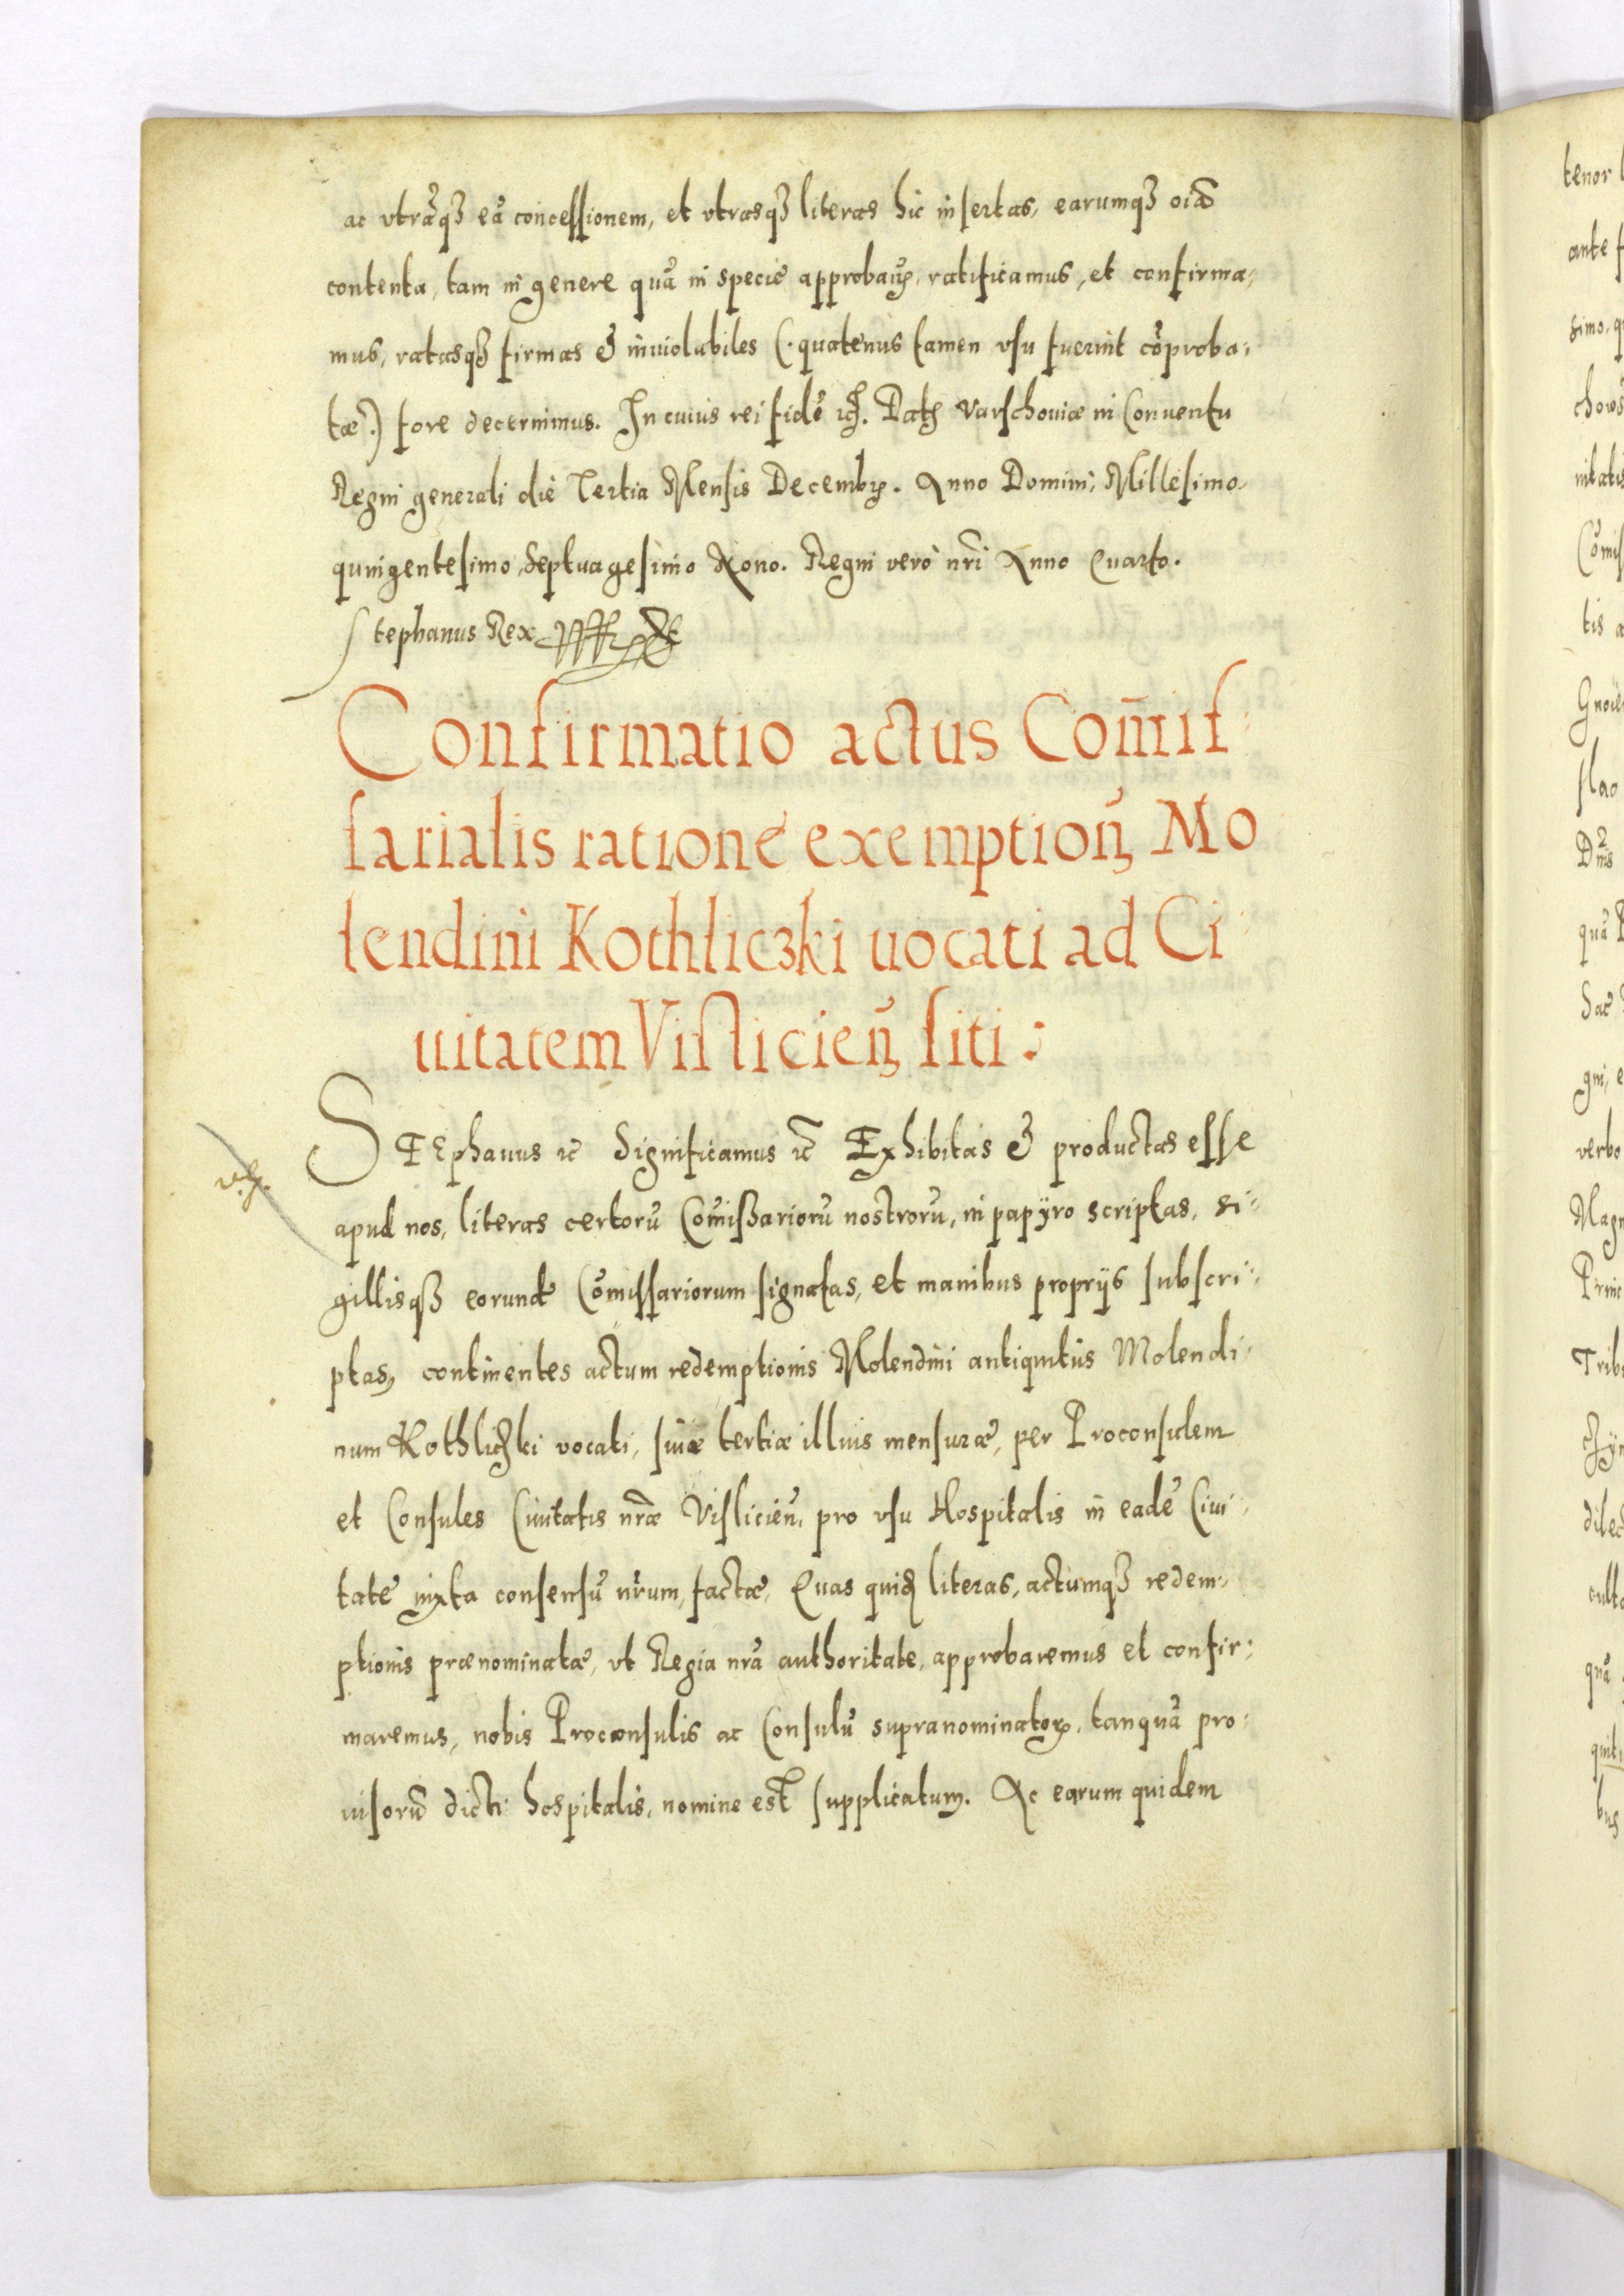 ac vtrāqȝ eā concessionem, et vtrasqȝ literas hic insertas, earumqȝ oīa
contenta, tam in genere quā in specie approbamꝰ, ratificamus, et confirma,
mus, ratasqȝ firmas & inuiolabiles (. quatenus tamen vsu fuerint cōproba,
tæ.) fore decernimus. In cuius rei fidē Dat Varschouiæ in Conuentu
Regni generali die Tertia Mensis Decembꝝ. Anno Domini, Millesimo
quingentesimo, Septuagesimo Nono. Regni vero nrī Anno Quarto.
Stephanus Rex
Confirmatio actus Com̄is-
sarialis ratione exemption̄ Mo
lendini Kothliczki uocati ad Ci-
uitatem Vislicien̄ siti:
STEphanus ꝛc Significamus ꝛc Exhibitas & productas esse
apud nos, literas certorū Com̄ißariorū nostrorū, in papÿro scriptas, si-
gillisqȝ eorundē Cōmissariorum signatas, et manibus proprÿs subscri-
ptas, continentes actum redemptionis Molendini antiquitus Molendi-
num Kothliczki vocati, siuæ tertiæ illius mensuræ, per Proconsulem
et Consules Ciuitatis nrāe Vislicien̄, pro vsu Hospitalis in eadē Ciui-
tate iuxta consensū nrūm, factæ, Quas quid literas, actumqȝ redem-
ptionis prænominatæ, vt Regia nrā authoritate, approbaremus et confir-
maremus, nobis Proconsulis ac Consulū supranominatoꝝ, tanquā pro-
uisorū dicti hospitalis, nomine est supplicatum. Ac earum quidem
tenor
ante
simo, q
chows
nitatis
tis a
slao
quā
gni, e
verbo
Magn
Prin
Trib
dilec
culto